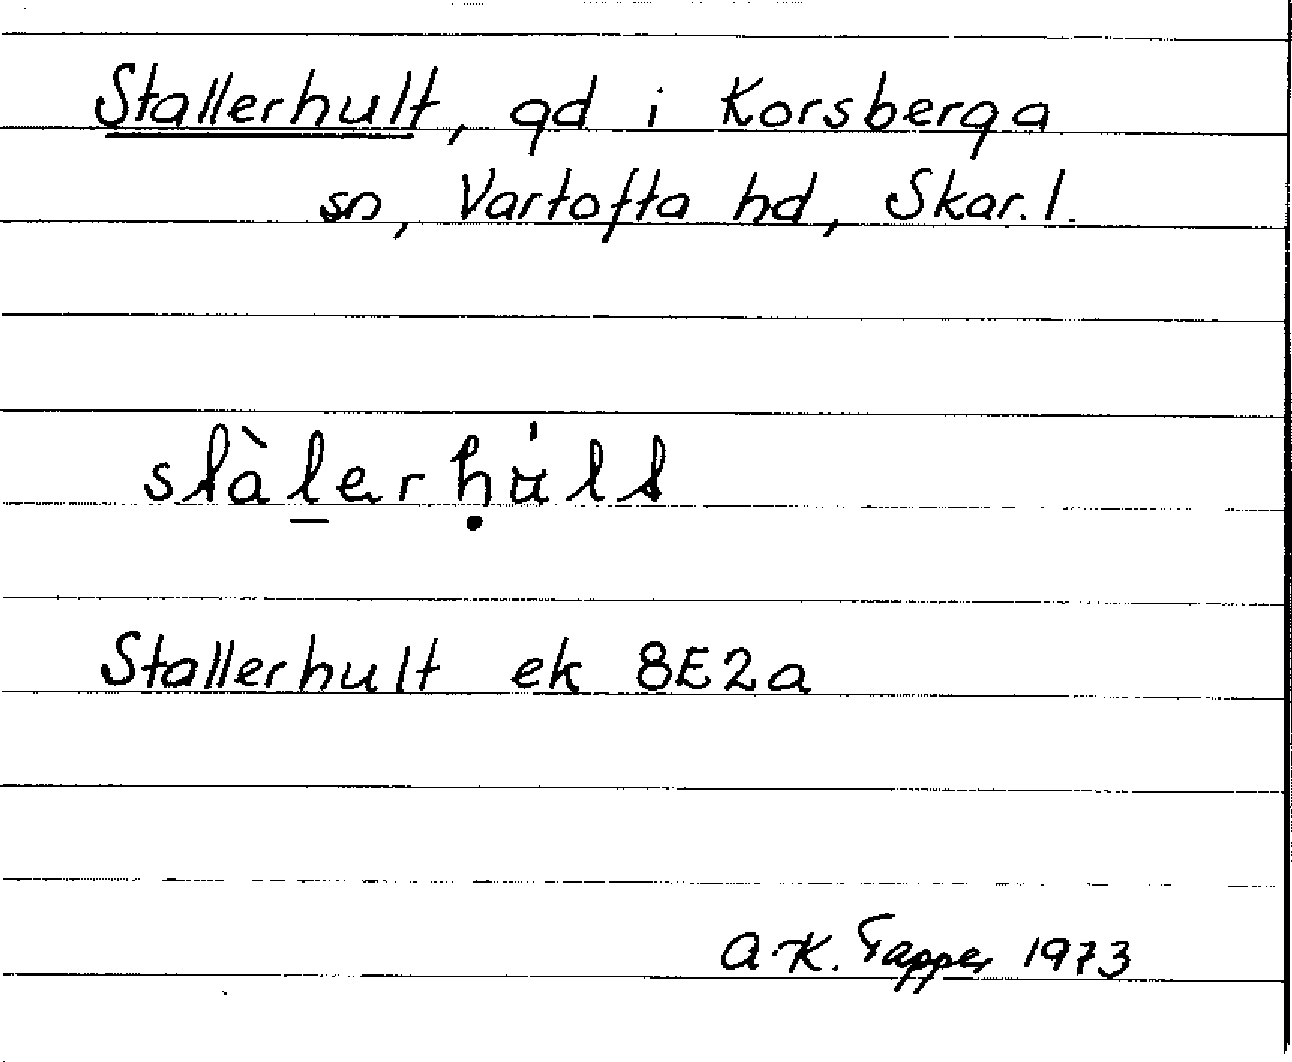 Stallerhult, gd i Korsberga
sn, Vartofta hd, Skar. l.
stàl̲erḥu̍lt
Stallerhult ek 8E2a
A-K. Tapper 1973